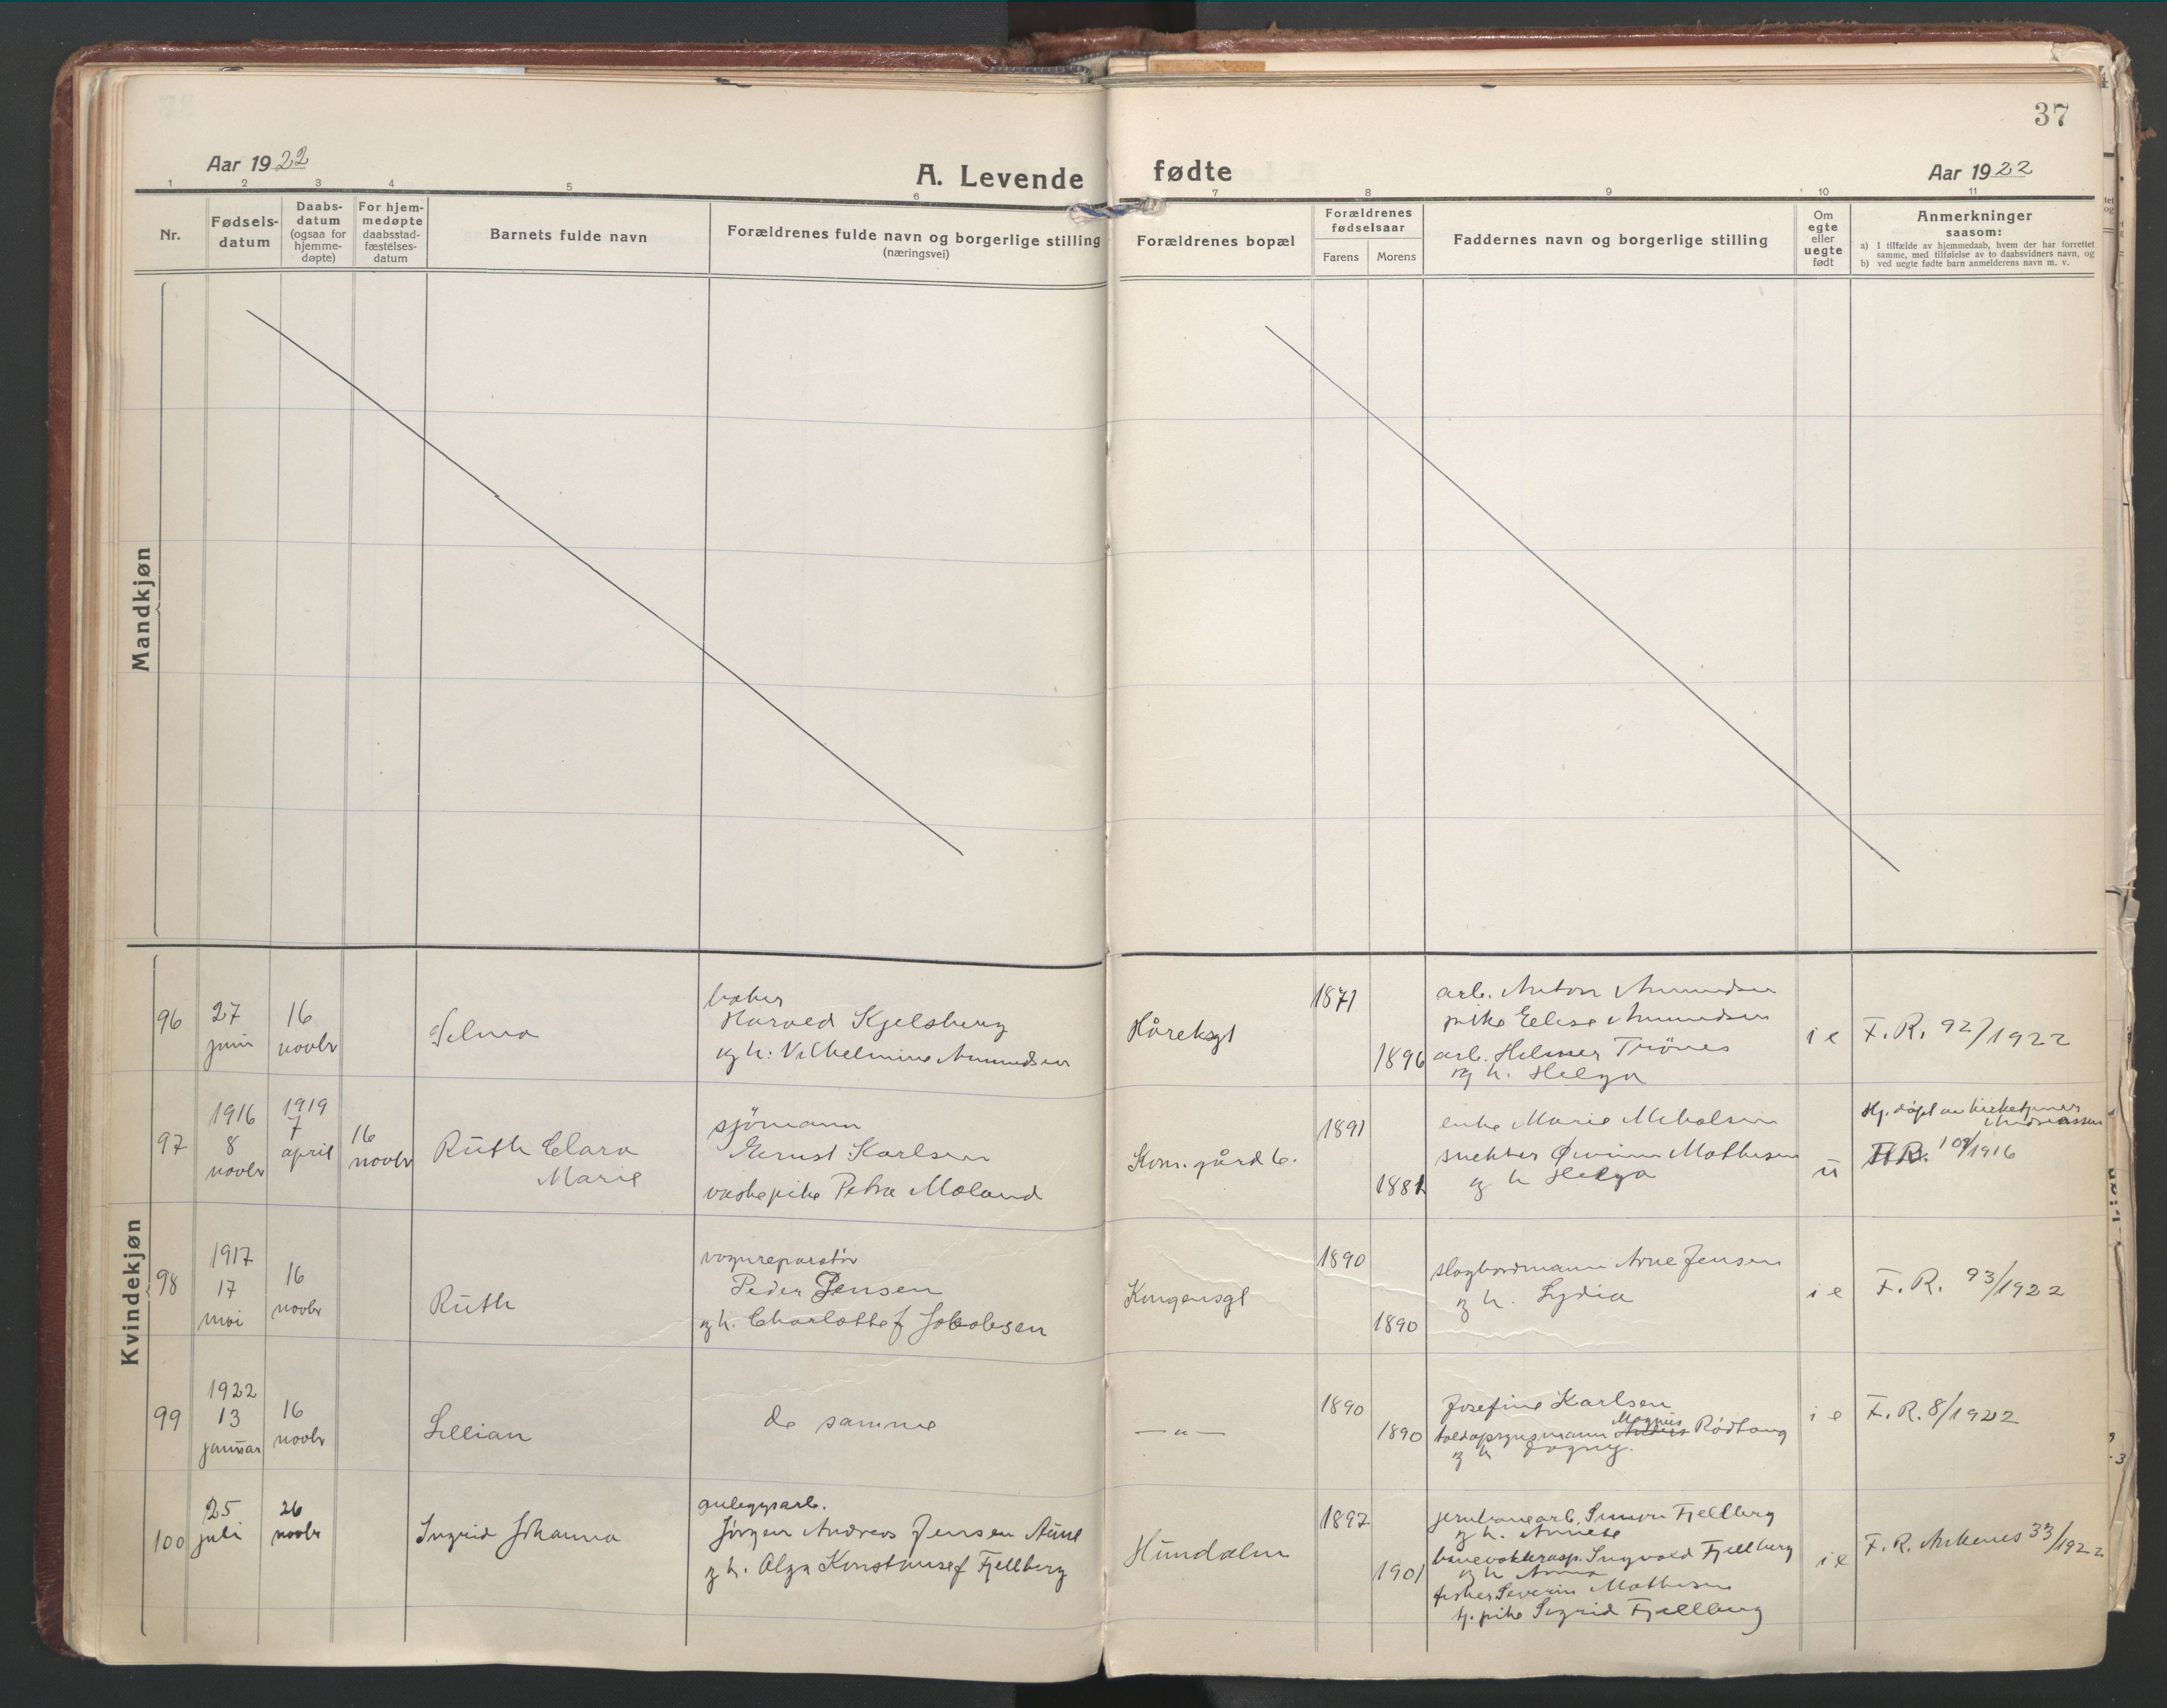 37
Aar 1922
A. Levende fødte
Aar 1922
1 2 3 4 5 6 7 8 9 10 11
Nr.
Fødsels-
datum
Daabs-
datum
(ogsaa for
hjemme-
døpte)
For hjem-
medøpte
daabsstad-
fæstelses-
datum
Barnets fulde navn
Forældrenes fulde navn og borgerlige stilling
(næringsvei)
Forældrenes bopæl
Forældrenes
fødselsaar
Farens Morens
Faddernes navn og borgerlige stilling
Om
egte
eller
uegte
født
Anmerkninger
saasom:
a) I tilfælde av hjemmedaab, hvem der har forrettet
samme, med tilføielse av to daabsvidners navn, og
b) ved uegte fødte barn anmelderens navn m. v.
Mandkjøn
Kvindekjøn
96
27
juni
16
novbr
Selma
baker
Harald Kjelsberg
og h: Vilhelmine Amundsen
Håreksgt
1871
1896
arb. Anton Amundsen
pike Elise Amundsen
arb. Hilmer Trönes
og h. Helga
i e
F. R. 92/1922
97
1916
8
novbr
1919
7
april
16
novbr
Ruth Clara
Marie
sjömann
Ernst Karlsen
vaskepike Petra Moland
Kom. gård 6.
1891
1881
enke Marie Nicholsen
snekker Øivinn Mathisen
og h Helga
u
Hj. døpt av kirketjener
Andreassen
F.R. 109/1916
98
1917
17
mai
16
novbr
Ruth
vognreparatör
Peder Jensen
og h. Charlotte f Jakobsen
Kongensgt
1890
1890
slagbordmann Arne Jensen
og h. Lydia
i e
F. R. 93/1922
99
1922
13
januar
16
novbr
Lillian
de samme
— " —
1890
1890
Josefine Karlsen
Magnus
toldopsynsmann Anders Rödtang
og h Dagny.
i e
F. R. 8/1922
100
25
juli
26
novbr
Ingrid Johanna
anleggsarb.
Jørgen Andreas Jensen Aune
og h. Olga Konstanse f Fjellberg
Hundalen
1897
1901
jernbanearb. Simon Fjellberg
og h. Annete
banevokterasp. Ingvald Fjellberg
og h Anna
fisker Severin Mathisen
tj. pike Sigrid Fjellberg
i e
F. R. Ankenes 33/1922